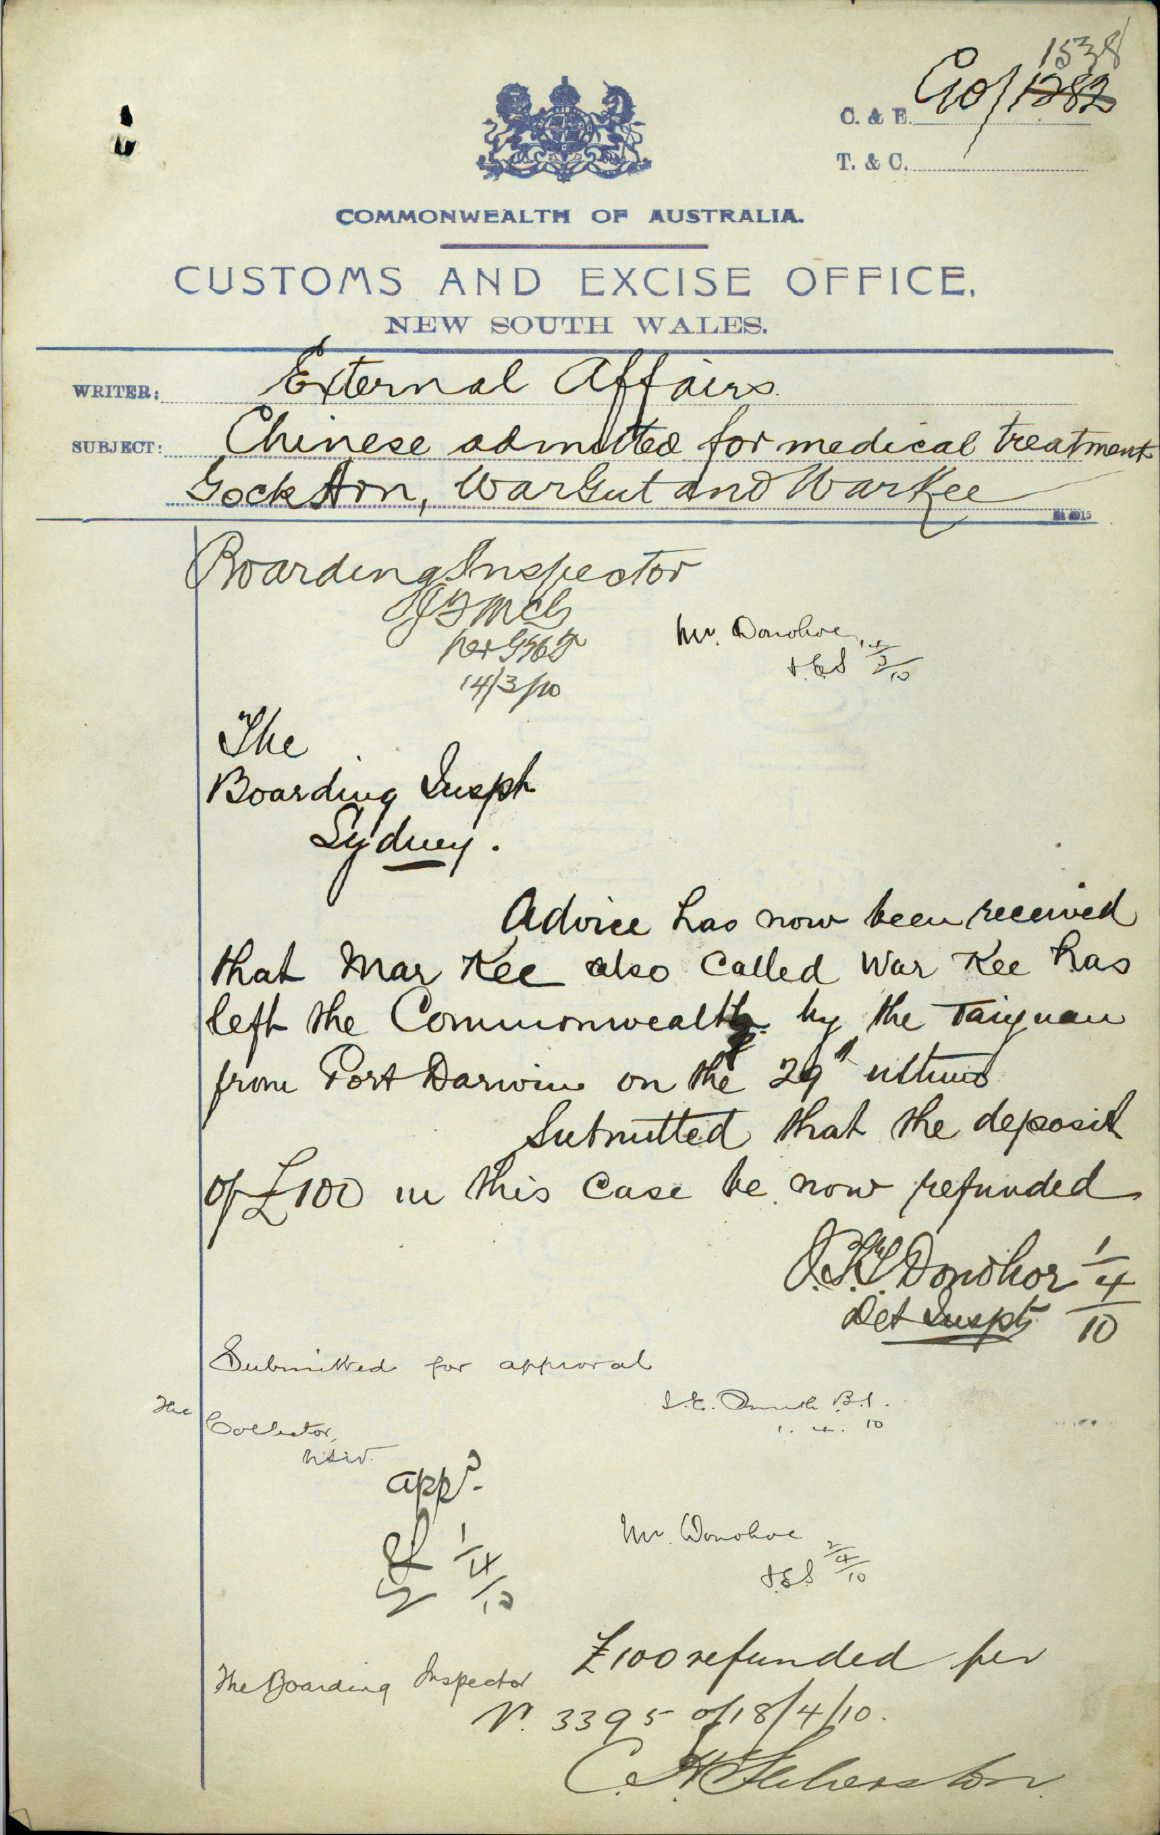 1538
C. & E. G10/1282
T. & C.
COMMONWEALTH OF AUSTRALIA.
CUSTOMS AND EXCISE OFFICE,
NEW SOUTH WALES.
WRITER: External Affairs
SUBJECT: Chinese admitted for medical treatment
Gock Hon, War Gut and War Kee
Boarding Inspector
14/3/10
Mr. Donohoe,
J.E.S 14/3/10
The
Boarding Inspr
Sydney.
Advice has now been received
that Mar Kee also called War Kee has
left the Commonwealth by the Taiyuan
from Port Darwin on the 29th ultimo
Submitted that the deposit
of £100 in this case be now refunded
Donohoe 1/4/10
Det Inspr
Submitted for approval
The
Collector,
NSW.
B.I.
1. 4. 10
appd.
1/4/10
Mr. Donohoe
J.E.S 2/4/10
The Boarding Inspector
£100 refunded per
No. 3395 of 18/4/10.